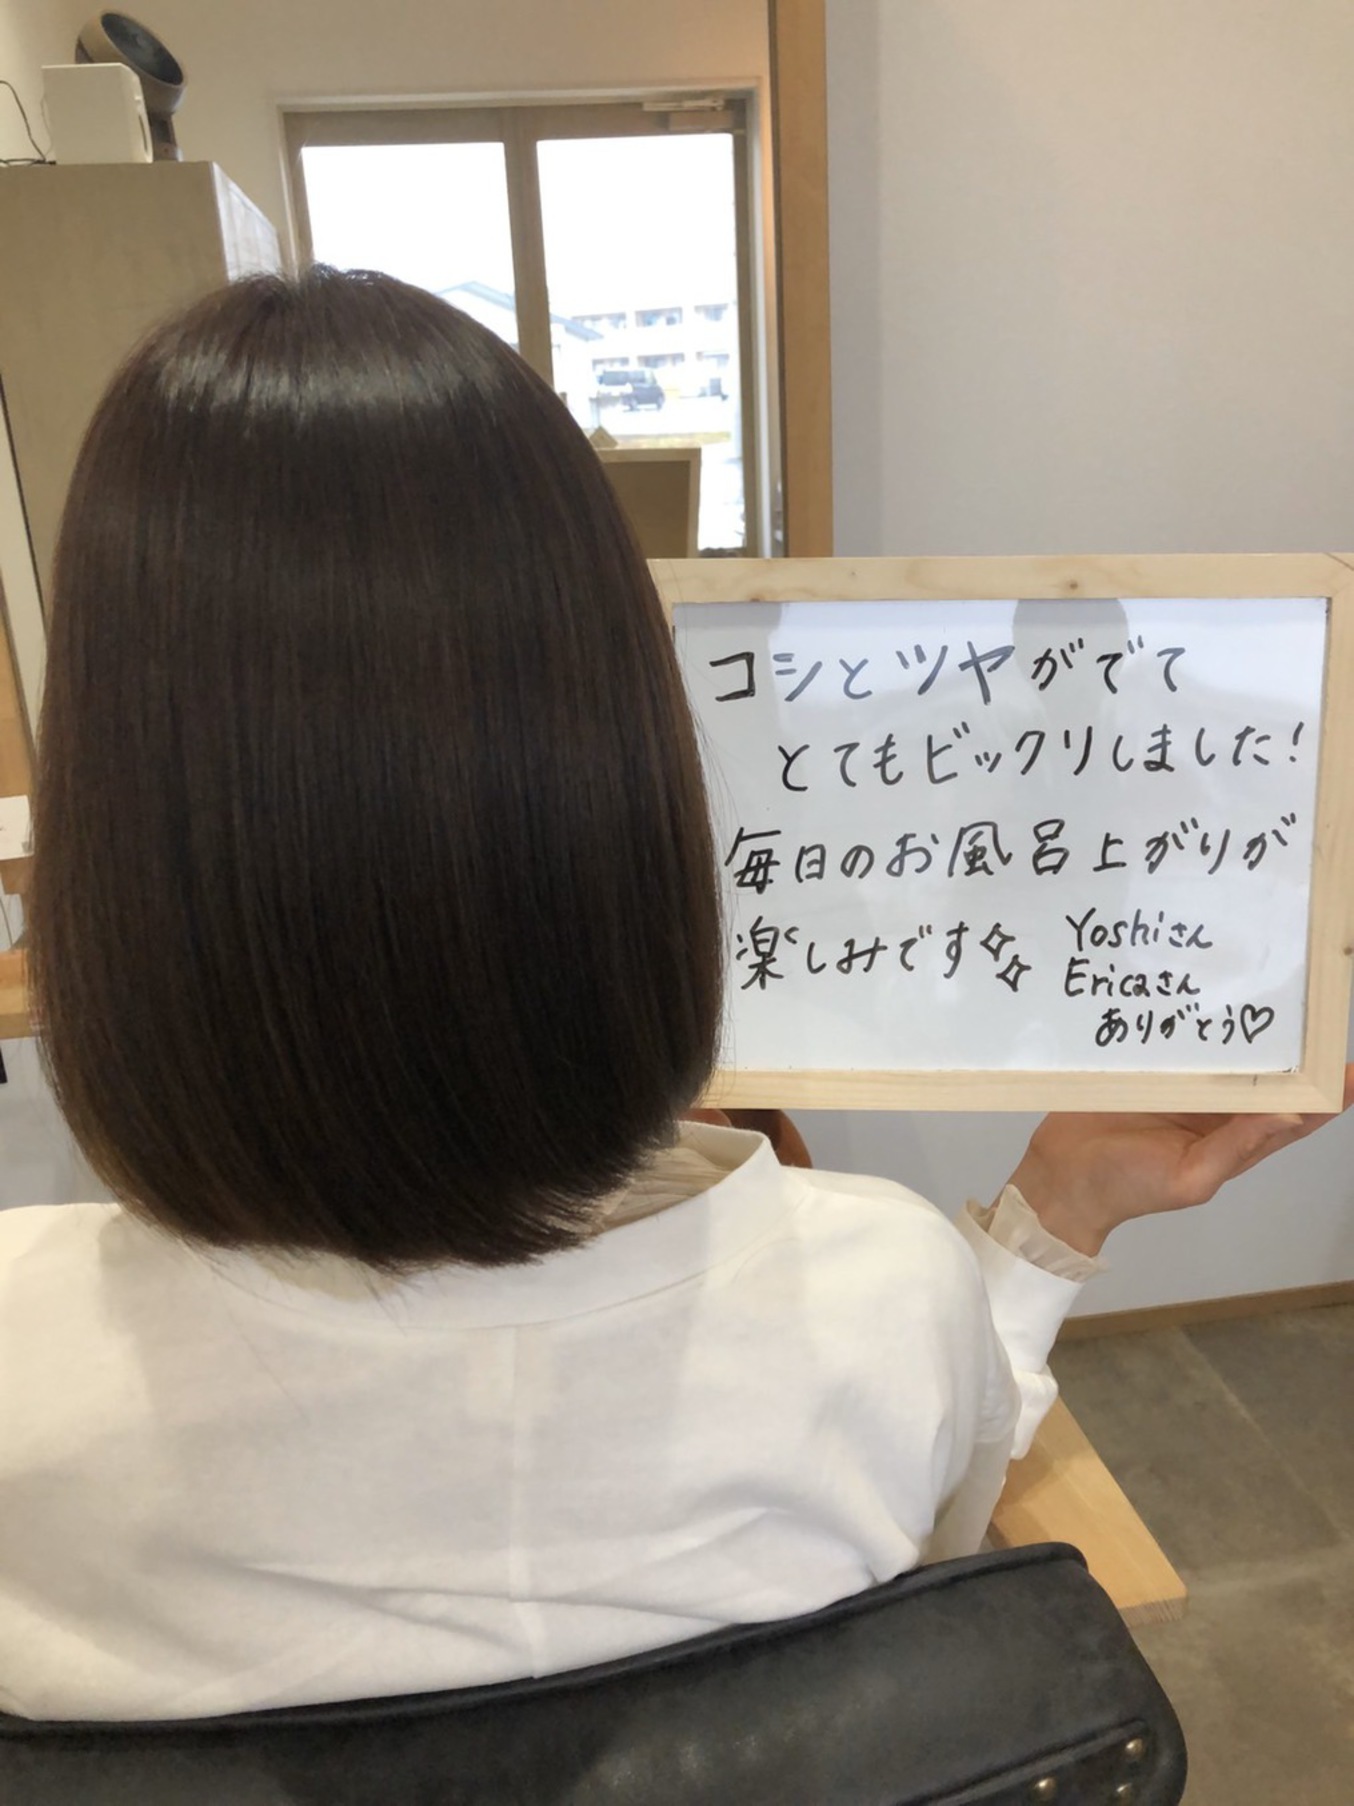 コシとツヤがでて
とてもビックリしました!
毎日のお風呂上がりが
楽しみです✧✧
Yoshiさん
Ericaさん
ありがとう♡